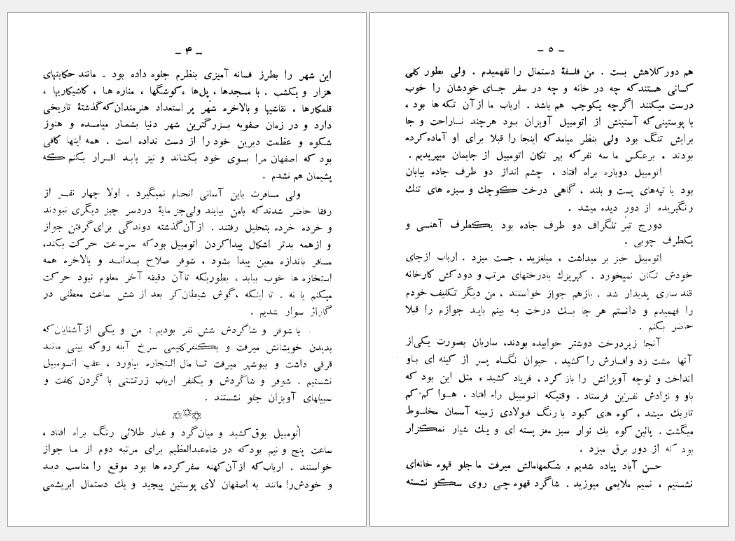 ـ ۴ ـ
این شهر را بطرز فسانه آمیزی بنظرم جلوه داده بود . مانند حکایتهای
هزار و یکشب . با مسجدها ، پل‌ها ، کوشگها ، مناره هـا ، کاشیکاریها ،
قلمکارها ، نقاشیها و بالاخره شهر پر استعداد هنرمندان که گذشتهٔ تاریخی
دارد و در زمان صفویه بزرگترین شهر دنیا بشمـار میامـده و هنوز
شکوه و عظمت دیرین خود را از دست نداده است . همه اینها کافی
بود که اصفهان مرا بسوی خود بکشاند و نیز بایـد اقـرار بکنم کـه
پشیمان هم نشدم .
ولی مسافرت باین آسانی انجام نمیگیرد . اولا چهار نفـر از
رفقا حاضر شدند که بامن بیایند ولی جز مایهٔ دردسر چیز دیگری نبودند
و خرده خرده بتحلیل رفتند . از آن گذشته دوندگی برای گرفتن جواز
و از همه بدتر اشکال پیدا کردن اتومبیل بود که سرساعت حرکت بکند،
مسافر باندازه معین پیدا بشود ، شوفر صلاح بـدانـد و بالاخره همه
استخاره ها خوب بیاید ، بطوریکه تا آن دقیقه آخر معلوم نبود حرکت
میکنم یا نه . تا اینکه ، گوش شیطان کر بعد از شش ساعت معطلی در
گاراژ سوار شدیم .
با شوفر و شاگردش شش نفر بودیم : من و یکی از آشنایان که
بدیدن خویشانش میرفت و یکنفر کلیمی سرخ آبله رو که بینی مانند
قرقی داشت و ببوشهر میرفت تـا مـال التجاره بیاورد ، عقب اتـومبیل
نشستیم . شوفر و شاگردش و یکنفر ارباب زرتشتی با گردن کلفت و
سبیلهای آویزان جلو نشستند .
اتومبیل بوق کشید و میان گرد و غبار طلائی رنگ براه افتاد ،
ساعت پنج و نیم بود که در شاه عبدالعظیم برای مرتبه دوم از مـا جواز
خواستند . ارباب که از آن کهنه سفر کرده ها بود موقع را مناسب دیـد
و خودش را مانند به اصفهان لای پوستین پیچید و یك دستمال ابریشمی
ـ ۵ ـ
هم دور کلاهش بست . من فلسفهٔ دستمال را نفهمیدم . ولی بطور کلی
کسانی هستند که چه در خانه و چه در سفر جـای خودشان را خوب
درست میکنند اگرچه یکوجب هم باشد . ارباب ما از آن تکه ها بود ،
با پوستینی که آستینش از اتومبیل آویزان بـود هرچند نـاراحت و جا
برایش تنگ بود ولی بنظر میامد که اینجا را قبلا برای او آماده کرده
بودند . برعکس ما سه نفر که بهر تکان اتومبیل از جایمان میپریدیم .
اتومبیل دوباره براه افتاد . چشم انداز دو طرف جاده بیابان
بود با تپه‌های پست و بلند ، گاهی درخت کـوچك و سبزه های تنك
رنگپریده از دور دیده میشد .
دورج تیر تلگراف دو طرف جاده بود یـکطرف آهنـی و
یکطرف چوبی .
اتومبیل خیز بر میداشت ، میلغزید ، جست میزد . ارباب از جای
خودش تکـان نمیخورد . کهریزك با درختهای مرتب و دودکش کارخانه
قند سازی پدیدار شد . بازهم جواز خواستند . من دیگر تکلیف خودم
را فهمیدم و دانستم هر جا یـك درخت بـه بینم بایـد جوازم را قبلا
حاضر بکنم .
آنجا زیر درخت دوشتر خوابیده بودند، ساربان بصورت یکی از
آنها مشت زد و افسارش را کشید . حیوان نگـاه پس از کینه ای باو
انداخت و لوچه آویزانش را باز کرد ، فریاد کشید ، مثل این بود که
باو و نژادش نفریـن فرستاد . وقتیکه اتـومبیل راه افتاد ، هـوا کم کم
تاریك میشد ، کوه های کبود با رنگ فـولادی زمینه آسمان مخلـوط
میگشت . پائین کوه یك نوار سبز مغز پسته ای و یـك شیار نمکـزار
بود که از دور برق میزد .
حسن آباد پیاده شدیم و شکمهامالش میرفت ما جلو قهوه خانه‌ای
نشستیم ، نسیم ملایمی میوزید . شاگرد قهوه چـی روی سـکو نشسته